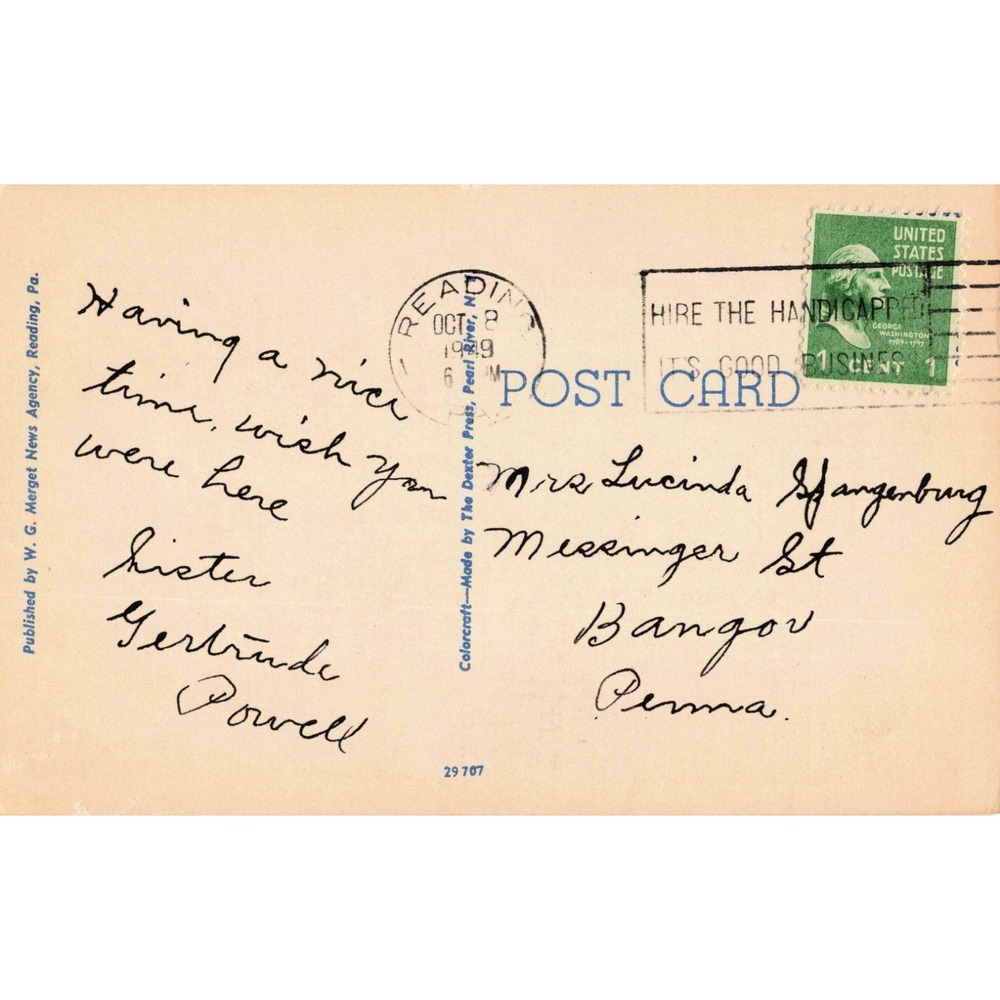 Published by W. G. Merget News Agency, Reading, Pa.
Having a nice
time, wish you
were here
Sister
Gertrude
Powell
READING
OCT 8
1949
6 PM
PA.
Colorcraft—Made by The Dexter Press, Pearl River, N.
29707
POST CARD
HIRE THE HANDICAPPED
IT'S GOOD BUSINESS
UNITED
STATES
POSTAGE
GEORGE
WASHINGTON
1789-1797
1 CENT 1
Mrs Lucinda Spangenburg
Messinger St
Bangor
Penna.